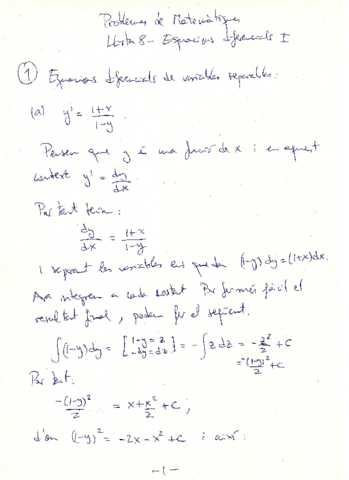 Problemes de Matemàtiques
Llista 8 - Equacions diferencials I
① Equacions diferencials de variables separables:
(a) y' = (1+x)/(1-y)
Pensem que y és una funció de x i en aquest
context y' = dy/dx
Per tant tenim:
dy/dx = (1+x)/(1-y)
i separant les variables ens queda (1-y)dy = (1+x)dx.
Ara integrem a cada costat. Per fer més fàcil el
resultat final, podem fer el següent.
∫(1-y)dy = [1-y=z -dy=dz] = -∫z dz = -z²/2 + C
= -(1-y)²/2 + C
Per tant:
-(1-y)²/2 = x + x²/2 + C,
d'on (1-y)² = -2x - x² + C i així:
-1-